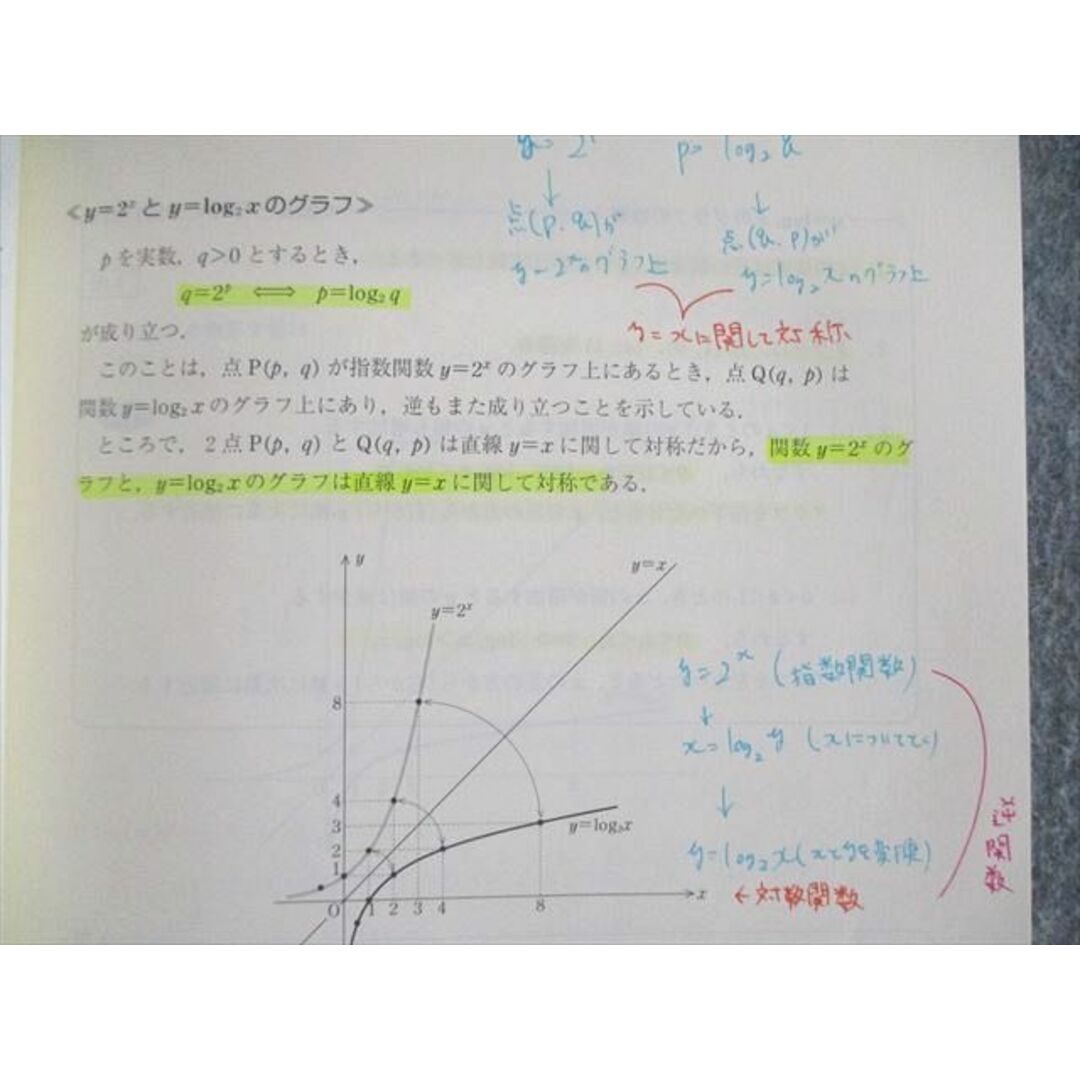 p= log₂ q
≪y=2ˣとy=log₂xのグラフ≫
点(p, q)が
点(q, p)が
pを実数，q>0とするとき，
y=2ˣのグラフ上
y=log₂xのグラフ上
q=2ᵖ ⟺ p=log₂q
が成り立つ．
y=xに関して対称
このことは，点P(p, q)が指数関数y=2ˣのグラフ上にあるとき，点Q(q, p)は
関数y=log₂xのグラフ上にあり，逆もまた成り立つことを示している．
ところで，2点P(p, q)とQ(q, p)は直線y=xに関して対称だから，関数y=2ˣのグ
ラフと，y=log₂xのグラフは直線y=xに関して対称である．
y
y=x
y=2ˣ
8
4
3
2
1
O
1 2 3 4 8
x
y=log₂x
y=2ˣ (指数関数)
↓
x=log₂y (xについてとく)
↓
y=log₂x(xとyを交換)
←対数関数
逆関数